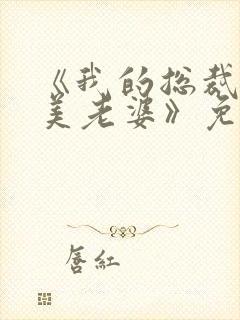 《我的总裁
美老婆》免
唇红